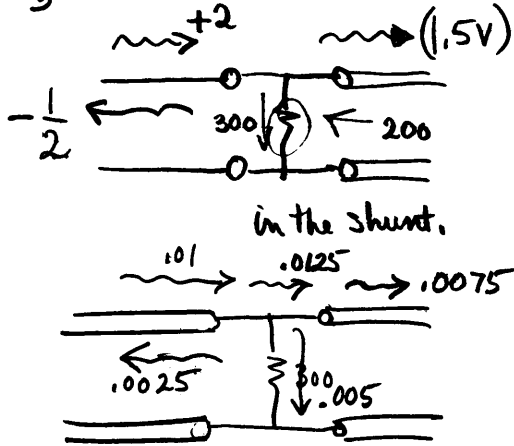 +2
(1.5V)
-1/2
300
200
in the shunt.
.01
.0125
.0075
.0025
300
.005